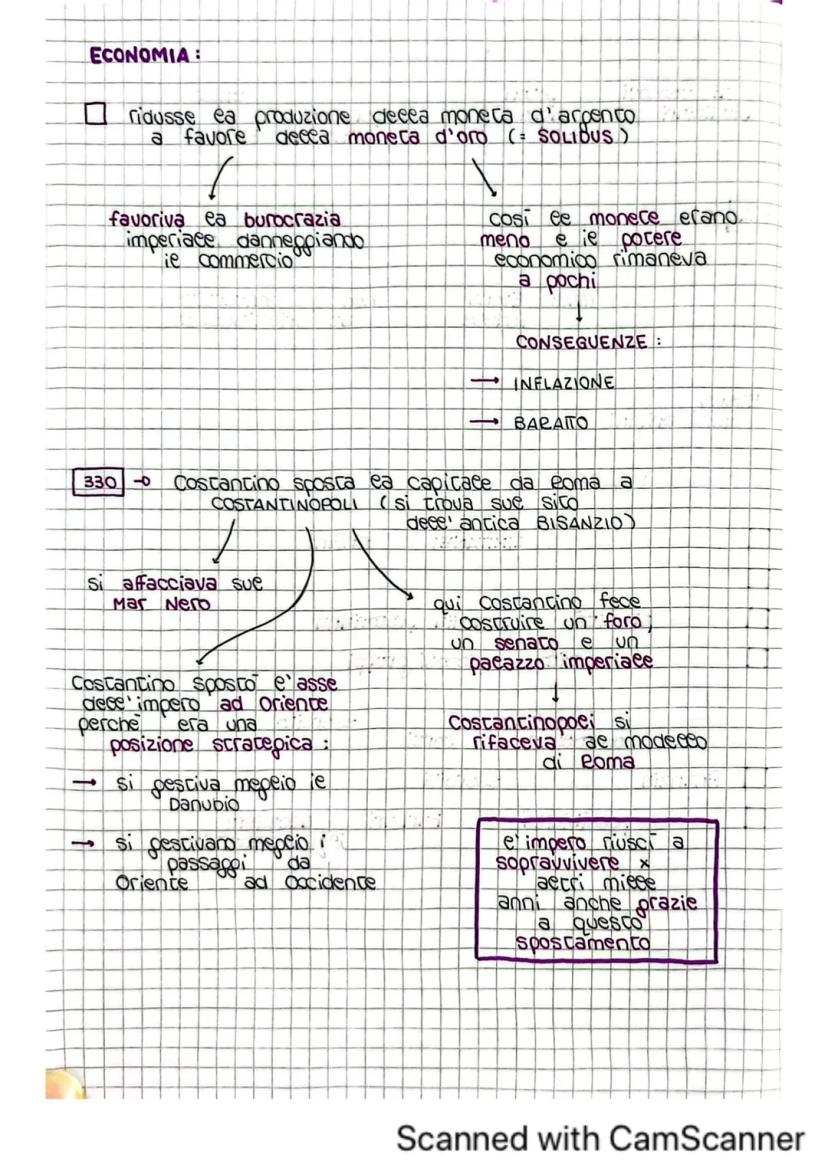 ECONOMIA:
ridusse la produzione della moneta d'argento
a favore della moneta d'oro (= SOLIDUS)
favoriva la burocrazia
imperiale danneggiando
il commercio
così le monete erano
meno e il potere
economico rimaneva
a pochi
CONSEGUENZE:
→ INFLAZIONE
→ BARATTO
330 → Costantino sposta la capitale da Roma a
COSTANTINOPOLI (si trova sul sito
dell'antica BISANZIO)
si affacciava sul
Mar Nero
qui Costantino fece
costruire un foro,
un senato e un
palazzo imperiale
Costantino spostò l'asse
dell'impero ad Oriente
perché era una
posizione strategica:
→ si gestiva meglio il
Danubio
→ si gestivano meglio i
passaggi da
Oriente ad Occidente
Costantinopoli si
rifaceva al modello
di Roma
l'impero riuscì a
sopravvivere x
altri mille
anni anche grazie
a questo
spostamento
Scanned with CamScanner